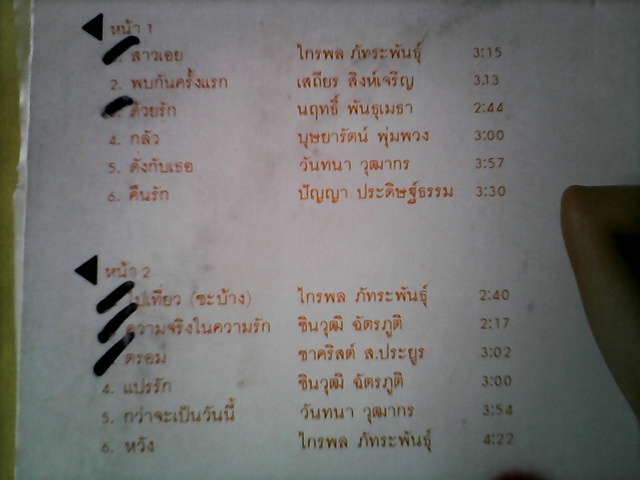 หน้า 1
สาวเอย ไกรพล ภัทระพันธุ์ 3:15
2. พบกันครั้งแรก เสถียร สิงห์เจริญ 3.13
ด้วยรัก นฤทธิ์ พันธุเมธา 2:44
4. กลัว บุษยารัตน์ พุ่มพวง 3:00
5. ดั่งกับเธอ วันทนา วุฒากร 3:57
6. คืนรัก ปัญญา ประดิษฐ์ธรรม 3:30
หน้า 2
ไปเที่ยว (ซะบ้าง) ไกรพล ภัทระพันธุ์ 2:40
ความจริงในความรัก ชินวุฒิ ฉัตรภูติ 2:17
ตรอม ชาคริสต์ ส.ประยูร 3:02
4. แปรรัก ชินวุฒิ ฉัตรภูติ 3:00
5. กว่าจะเป็นวันนี้ วันทนา วุฒากร 3:54
6. หวัง ไกรพล ภัทระพันธุ์ 4:22